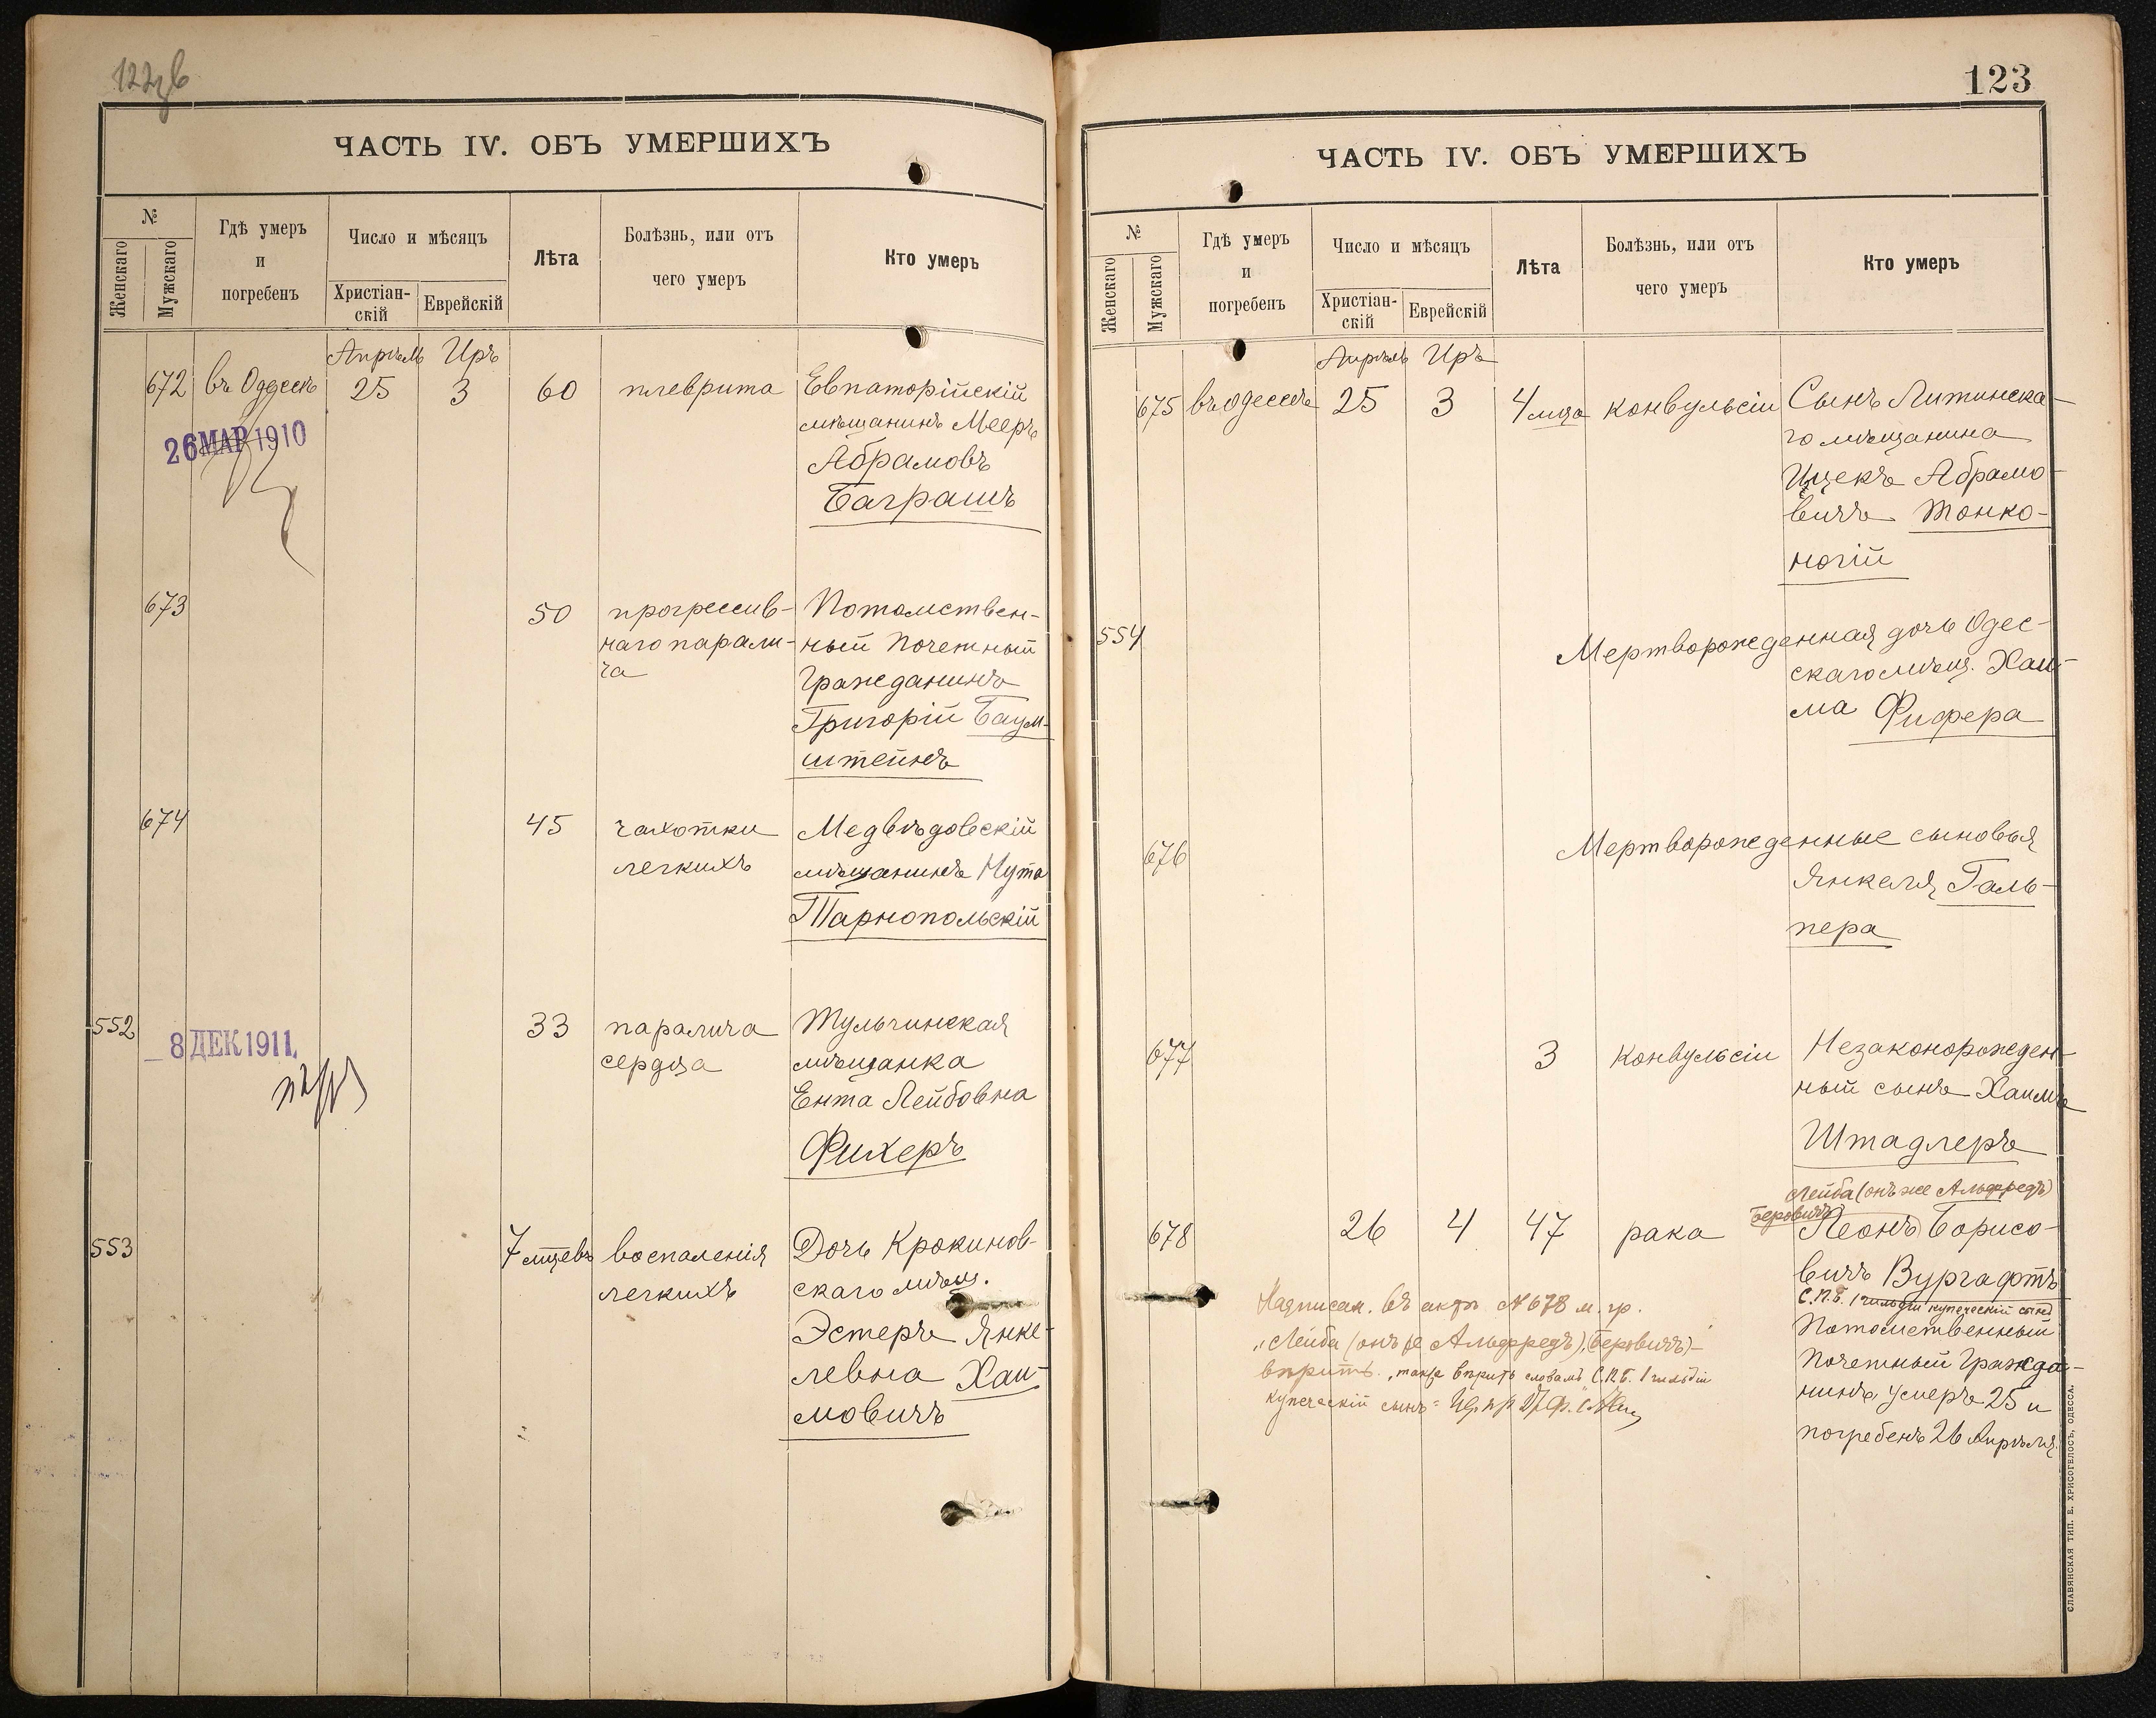 ЧАСТЬ IV. ОБЪ УМЕРШИХЪ
№
Женскаго
Мужскаго
Гдѣ умеръ
и
погребенъ
Число и мѣсяцъ
Христіан-
скій
Еврейскій
Лѣта
Болѣзнь, или отъ
чего умеръ
Кто умеръ
Апрѣль Иръ
672 въ Одессѣ 25 3 60 плеврита Евпаторійскій
мѣщанинъ Мееръ
Абрамовъ
Баграшъ
26 МАР 1910
673 50 прогрессив- Потомствен-
наго парали- ный Почетный
ча Гражданинъ
Григорій Баум-
штейнъ
674 45 чахотки Медвѣдовскій
легкихъ мѣщанинъ Нута
Тарнопольскій
552 33 паралича Тульчинская
сердца мѣщанка
Ента Лейбовна
Фихеръ
8 ДЕК 1911
553 7 мцевъ воспаленія Дочь Крокинов-
легкихъ скаго мѣщ.
Эстеръ Янке-
левна Хаи-
мовичъ
123
ЧАСТЬ IV. ОБЪ УМЕРШИХЪ
№
Женскаго
Мужскаго
Гдѣ умеръ
и
погребенъ
Число и мѣсяцъ
Христіан-
скій
Еврейскій
Лѣта
Болѣзнь, или отъ
чего умеръ
Кто умеръ
Апрѣль Иръ
675 въ Одессѣ 25 3 4 мца конвульсіи Сынъ Литинска-
го мѣщанина
Ицекъ Абрамо-
вичъ Тонко-
ногій
554 Мертворожденная дочь Одес-
скаго мѣщ. Хаи-
ма Фифера
676 Мертворожденные сыновья
Янкеля Галь-
пера
677 3 конвульсіи Незаконорожден-
ный сынъ Хаимъ
Штадлеръ
Лейба (онъ же Альфредъ)
Беровичъ
678 26 4 47 рака Леонъ Борисо-
вичъ Вургафтъ
С.П.Б. 1 гильдіи купеческій сынъ
Потомственный
Почетный Гражда-
нинъ, умеръ 25 и
погребенъ 26 Апрѣля
Надписан. въ актѣ № 678 м. гр.
"Лейба (онъ же Альфредъ) Беровичъ) -
вѣрить. также вѣрить словамъ С.П.Б. 1 гильдіи
купеческій сынъ
СЛАВЯНСКАЯ ТИП. Е. ХРИСОГЕЛОСЪ, ОДЕССА.